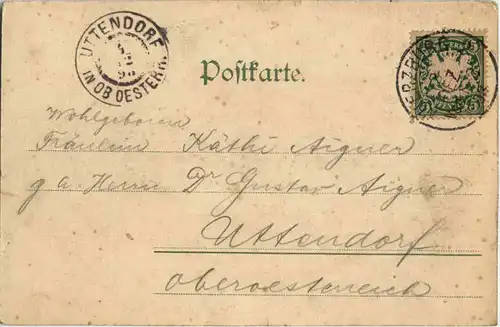 UTTENDORF
IN OB OESTERR.
Postkarte.
5 5
Wohlgeboren
Fräulein Käthi Aigner
g a. Herrn Dr Gustav Aigner
Uttendorf
oberoesterreich